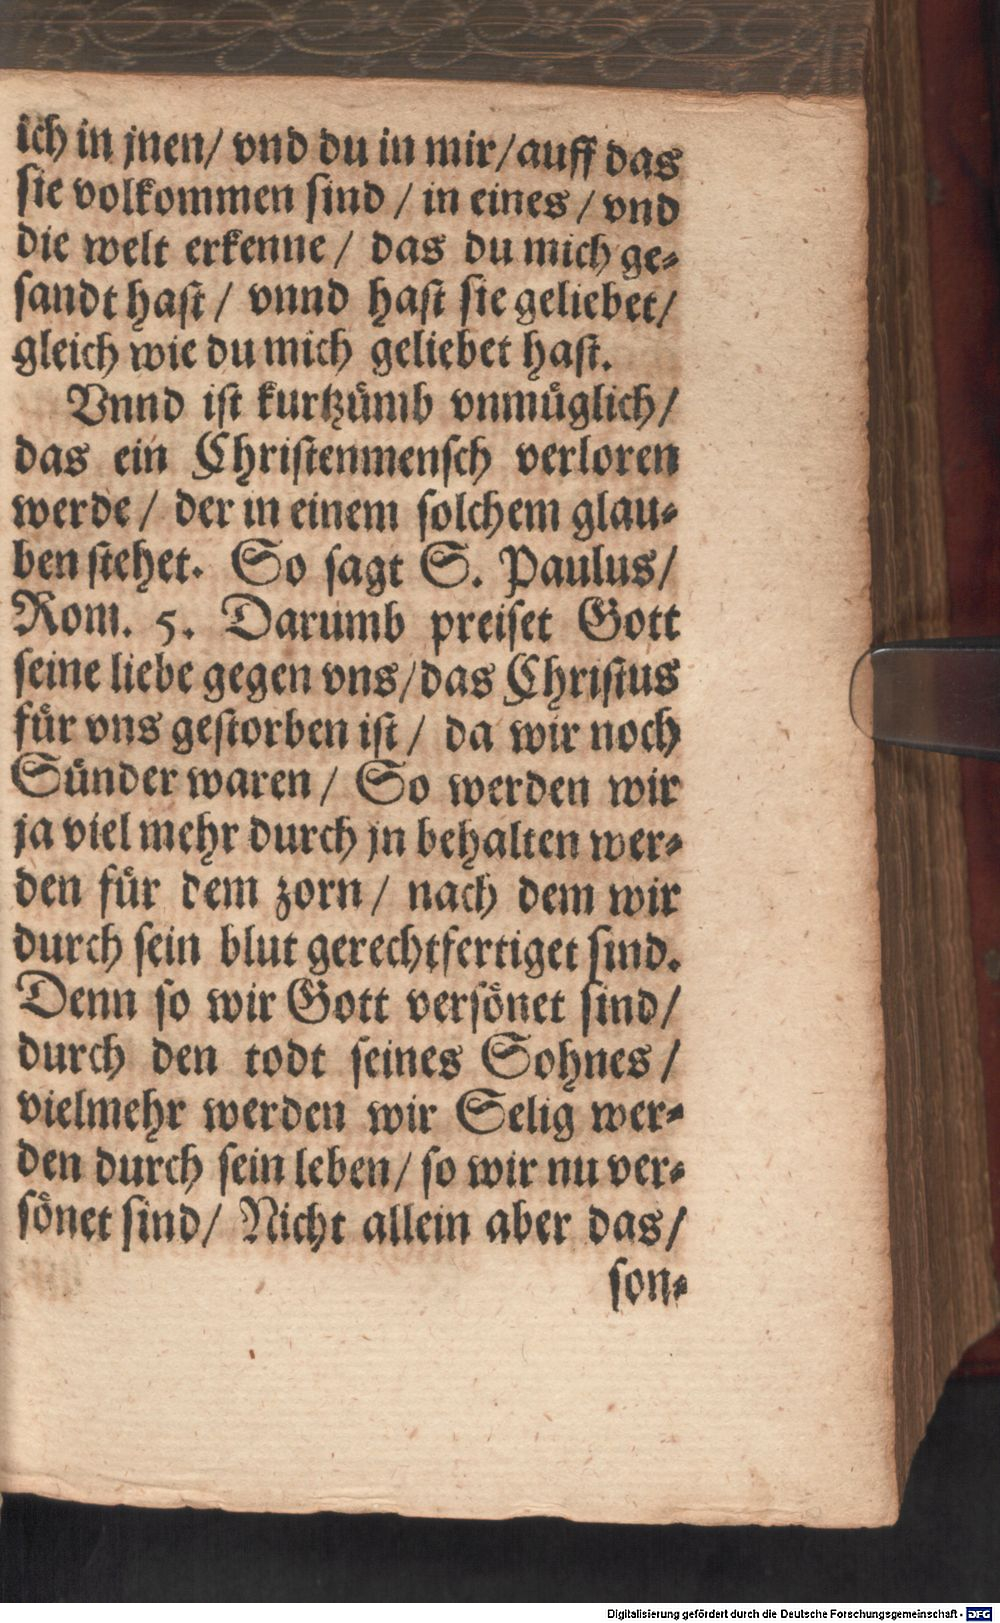 ich in jnen/ vnd du in mir/ auff das
sie volkommen sind / in eines / vnd
die welt erkenne / das du mich ge-
sandt hast / vnnd hast sie geliebet/
gleich wie du mich geliebet hast.
Vnnd ist kurtzümb vnmüglich/
das ein Christenmensch verloren
werde / der in einem solchem glau-
ben stehet. So sagt S. Paulus/
Rom. 5. Darumb preiset Gott
seine liebe gegen vns/das Christus
für vns gestorben ist / da wir noch
Sünder waren / So werden wir
ja viel mehr durch jn behalten wer-
den für dem zorn / nach dem wir
durch sein blut gerechtfertiget sind.
Denn so wir Gott versönet sind/
durch den todt seines Sohnes /
vielmehr werden wir Selig wer-
den durch sein leben/ so wir nu ver-
sönet sind/ Nicht allein aber das/
son-
Digitalisierung gefördert durch die Deutsche Forschungsgemeinschaft - DFG